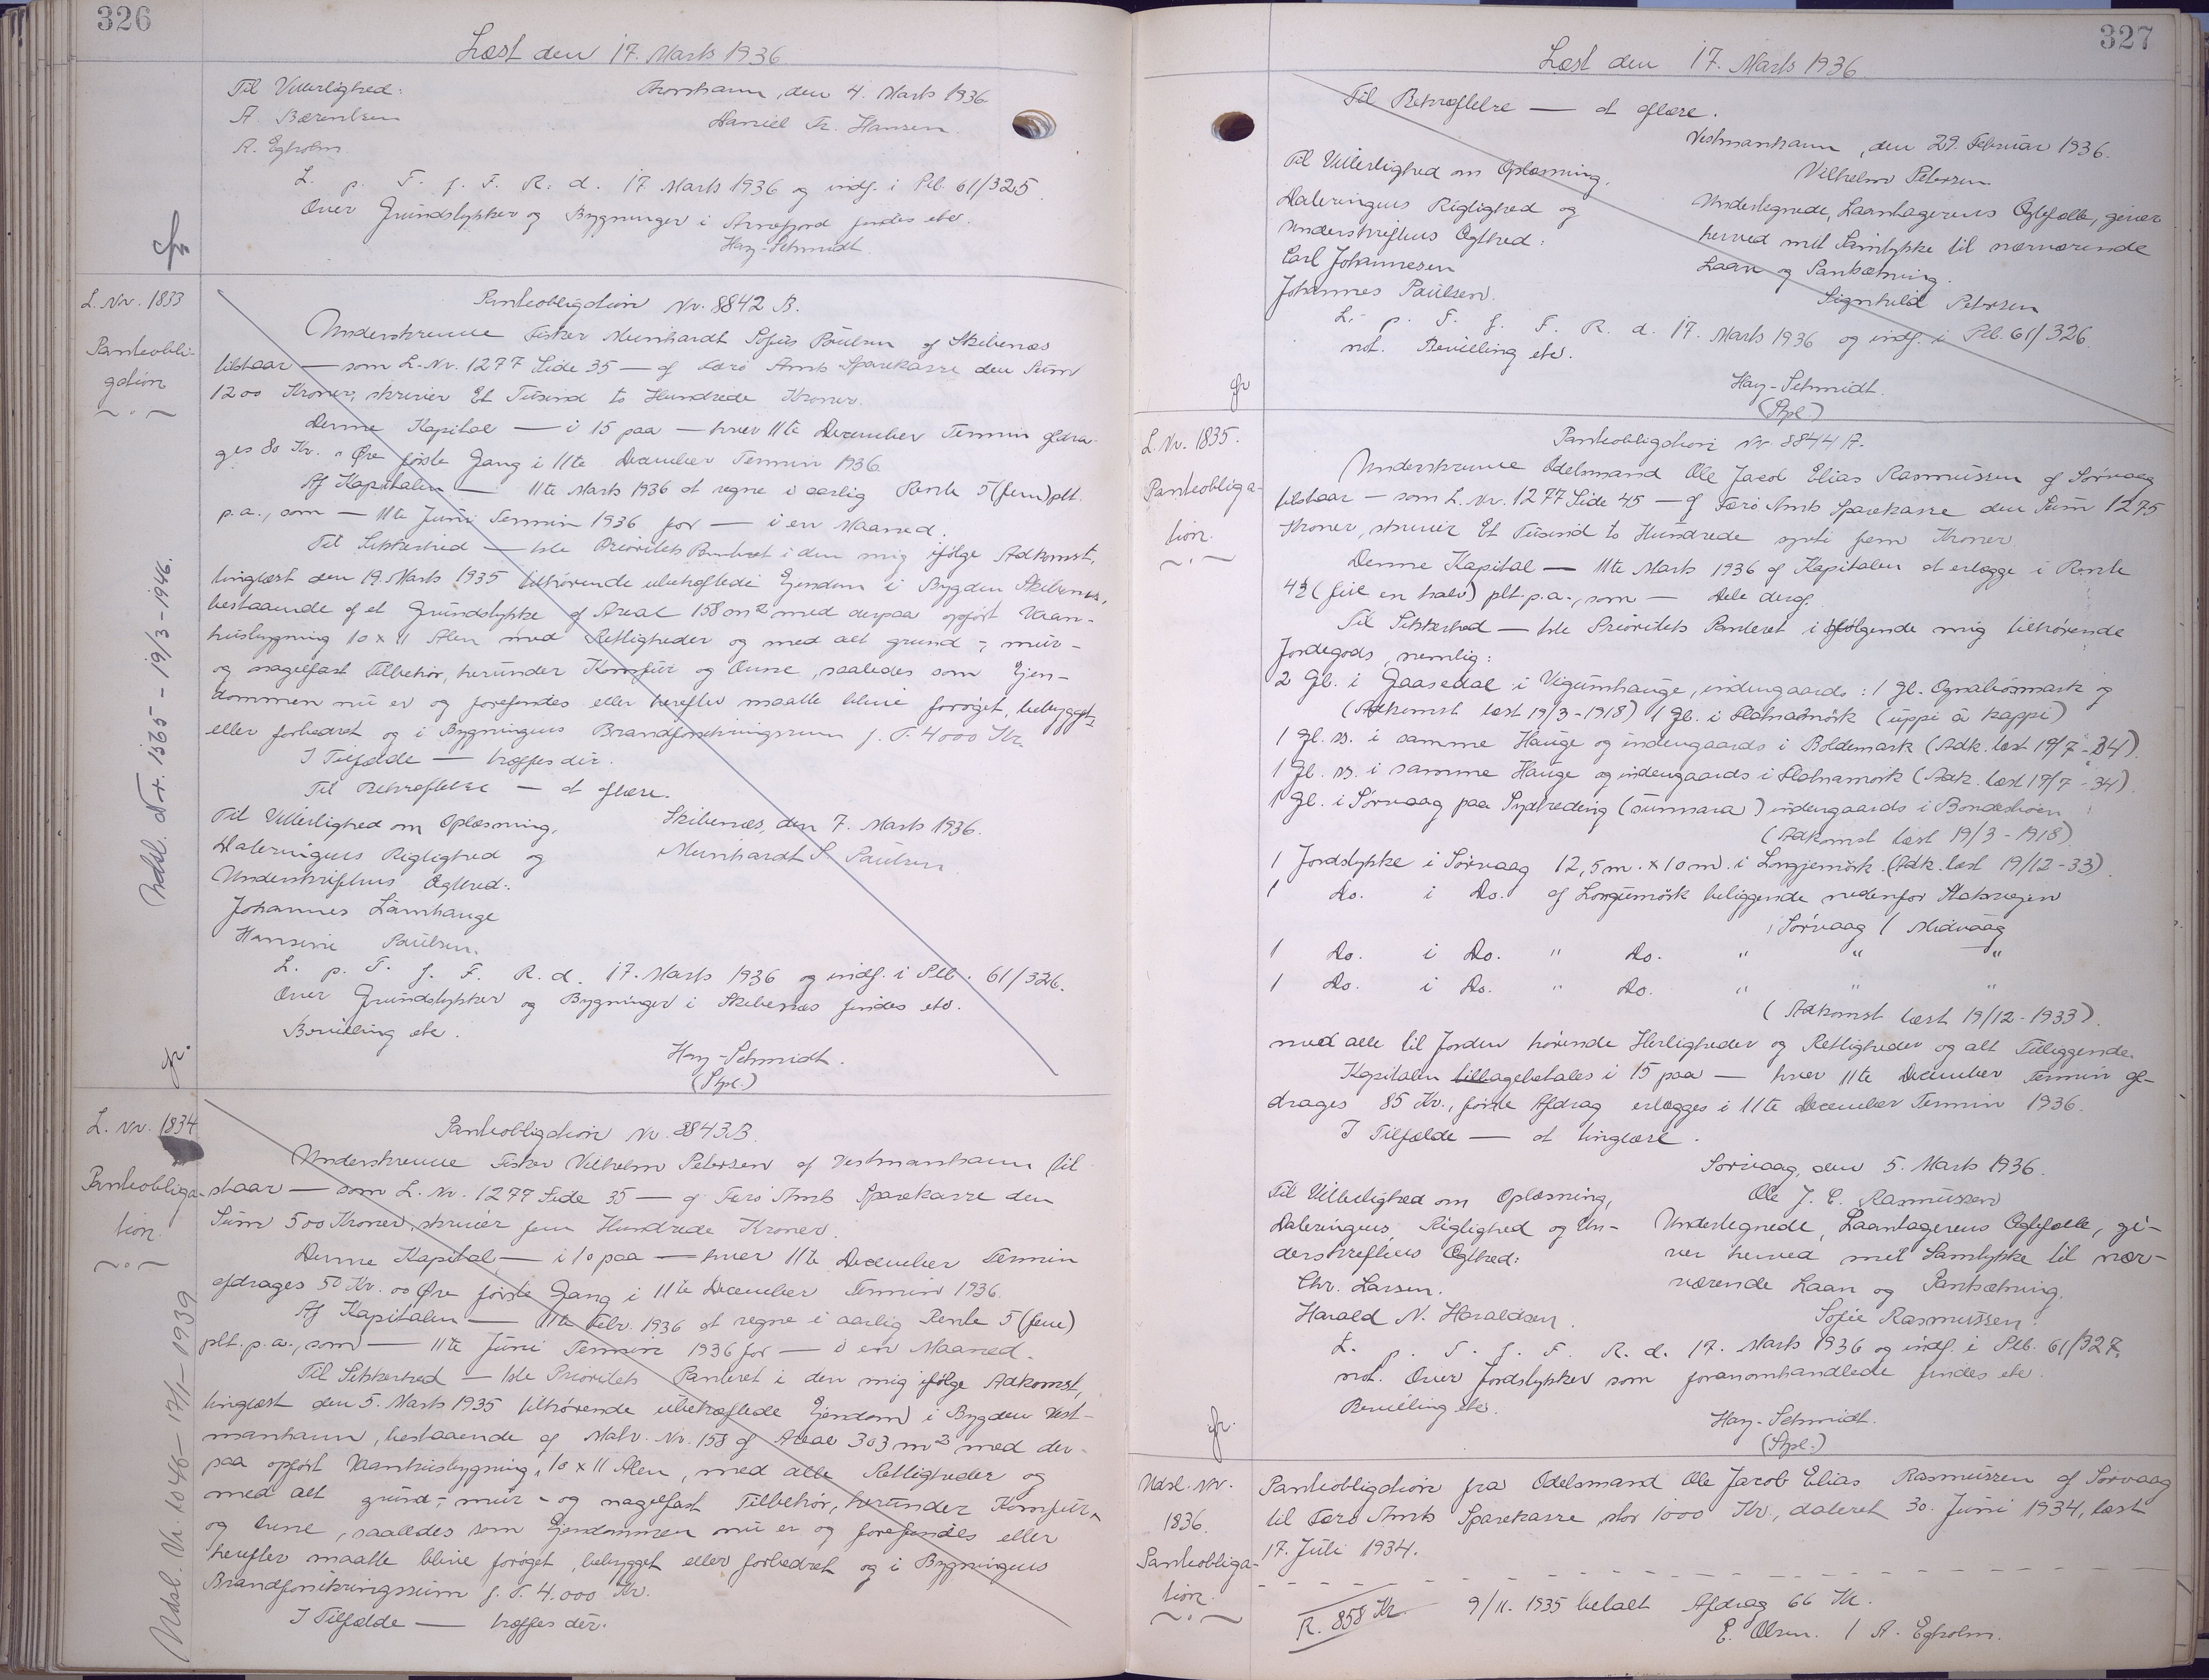 326
Læst den 17. Marts 1936.
Til Vitterlighed: Thorshavn, den 4. Marts 1936
A. Bærentsen Daniel Fr. Hansen.
A. Egholm.
L. p. T. f. F. R. d. 17 Marts 1936 og indf. i Ptb. 61/325.
Over Grundstykker og Bygninger i Arnefjord findes etc.
Hay-Schmidt.
L. Nr. 1833
Panteobli-
gation
Udsl. Nr. 1565 - 19/3 - 1946.
Panteobligation Nr. 8842 B.
Underskrevne Fisker Meinhardt Sofus Poulsen af Skibenæs
tilstaar — som L. Nr. 1277 Side 35 — af Færø Amts Sparekasse den Sum
1200 Kroner, skriver Et Tusind to Hundrede Kroner.
Denne Kapital — i 15 paa — hver 11te December Termin afdra-
ges 80 Kr. " Øre første Gang i 11te December Termin 1936
Af Kapitalen — 11te Marts 1936 at regne i aarlig Rente 5 (fem) pCt.
p.a., som — 11te Juni Termin 1936 for — i en Maaned.
Til Sikkerhed — 1ste Prioritets Panteret i den mig ifølge Adkomst,
tinglæst den 19. Marts 1935 tilhørende ubehæftede Ejendom i Bygden Skibenæs,
bestaaende af et Grundstykke af Areal 158 m2 med derpaa opført Vaan-
husbygning 10 x 11 Alen med Rettigheder og med alt grund-, mur-
og nagelfast Tilbehør, herunder Komfur og Ovne, saaledes som Ejen-
dommen nu er og forefindes eller herefter maatte blive forøget, bebygget
eller forbedret og i Bygningens Brandforsikringssum f. T. 4000 Kr.
I Tilfælde — træffes der.
Til Bekræftelse — at aflæse.
Til Vitterlighed om Oplæsning, Skibenæs, den 7. Marts 1936.
Dateringens Rigtighed og Meinhardt S. Poulsen
Underskriftens Ægthed:
Johannes Lamhauge
Hansine Poulsen.
L. p. T. f. F. R. d. 17. Marts 1936 og indf. i Ptb. 61/326.
Over Grundstykker og Bygninger i Skibenæs findes etc.
Bevilling etc.
Hay-Schmidt.
(Stpl.)
L. Nr. 1834
Panteobliga-
tion.
Udsl. Nr. 1046 - 17/1 - 1939
Panteobligation Nr. 8843 B.
Underskrevne Fisker Vilhelm Petersen af Vestmanhavn til
staar — som L. Nr. 1277 Side 35 — af Færø Amts Sparekasse den
Sum 500 Kroner, skriver fem Hundrede Kroner.
Denne Kapital — i 10 paa — hver 11te December Termin
afdrages 50 Kr. 00 Øre første Gang i 11te December Termin 1936.
Af Kapitalen — 11te Febr. 1936 at regne i aarlig Rente 5 (fem)
pCt. p.a., som — 11te Juni Termin 1936 for — i en Maaned.
Til Sikkerhed — 1ste Prioritets Panteret i den mig ifølge Adkomst,
tinglæst den 5. Marts 1935 tilhørende ubehæftede Ejendom i Bygden Vest-
manhavn, bestaaende af Matr. Nr. 158 af Areal 303 m2 med der-
paa opført Vaanhusbygning, 10 x 11 Alen, med alle Rettigheder og
med alt grund-, mur- og nagelfast Tilbehør, herunder Komfur
og Ovne, saaledes som Ejendommen nu er og forefindes eller
herefter maatte blive forøget, bebygget eller forbedret og i Bygningens
Brandforsikringssum f. T. 4.000 Kr.
I Tilfælde — træffes der.
327
Læst den 17. Marts 1936.
Til Bekræftelse — at aflæse.
Vestmanhavn, den 29. Februar 1936.
Til Vitterlighed om Oplæsning, Vilhelm Petersen
Dateringens Rigtighed og Undertegnede, Laantagerens Ægtefælle, giver
Underskriftens Ægthed: herved mit Samtykke til nærværende
Carl Johannesen Laan og Pantsætning.
Johannes Paulsen. Signhild Petersen
L. p. T. f. F. R. d. 17. Marts 1936 og indf. i Ptb. 61/326.
not. Bevilling etc.
Hay-Schmidt.
(Stpl.)
L. Nr. 1835.
Panteobliga-
tion.
Panteobligation Nr. 8844 A.
Underskrevne Odelsmand Ole Jacob Elias Rasmussen af Sørvaag
tilstaar — som L. Nr. 1277 Side 45 — af Færø Amts Sparekasse den Sum 1275
Kroner, skriver Et Tusind to Hundrede syvti fem Kroner
Denne Kapital — 11te Marts 1936 af Kapitalen at erlægge i Rente
4½ (fire en halv) pCt. p.a., som — Dele deraf.
Til Sikkerhed — 1ste Prioritets Panteret i følgende mig tilhørende
Jordegods, nemlig:
2 Gl. i Gaasedal i Vigumhauge, indengaards: 1 Gl. Ognabósmark og
(Adkomst læst 19/3 - 1918) 1 Gl. i Flatnamørk (uppi á kappi)
1 Gl. is. i samme Hauge og indengaards i Boldemark (Adk. læst 19/7 - 34).
1 Gl. is. i samme Hauge og indengaards i Flatnamørk (Adk. læst 19/7 - 34).
1 Gl. i Sørvaag paa Sydtreding (sunnara) indengaards i Bondeshoen
(Adkomst læst 19/3 - 1918).
1 Jordstykke i Sørvaag 12,5 m. x 10 m. i Longjemørk (Adk. læst 19/12 - 33).
1 Do. i Do. af Longumørk beliggende nedenfor Statsvejen
Sørvaag / Midvaag
1 Do. i Do. " Do. " " "
1 Do. i Do. " Do. " " "
(Adkomst læst 19/12 - 1933).
med alle til Jorden hørende Herligheder og Rettigheder og alt Tilliggende.
Kapitalen tilbagebetales i 15 paa — hver 11te December Termin af-
drages 85 Kr., første Afdrag erlægges i 11te December Termin 1936.
I Tilfælde — at tinglæse.
Sørvaag, den 5. Marts 1936.
Til Vitterlighed om Oplæsning, Ole J. E. Rasmussen
Dateringens Rigtighed og Un- Undertegnede, Laantagerens Ægtefælle, gi-
derskriftens Ægthed: ver herved mit Samtykke til nær-
Chr. Larsen. værende Laan og Pantsætning.
Harald N. Haraldsen. Sofie Rasmussen.
L. p. T. f. F. R. d. 17. Marts 1936 og indf. i Ptb. 61/327.
not. Over Jordstykker som foranomhandlede findes etc.
Bevilling etc.
Hay-Schmidt.
(Stpl.)
Udsl. Nr.
1836.
Panteobliga-
tion.
Panteobligation fra Odelsmand Ole Jacob Elias Rasmussen af Sørvaag
til Færø Amts Sparekasse, stor 1000 Kr., dateret 30. Juni 1934, læst
17. Juli 1934.
R. 858 Kr. 9/11. 1935 betalt Afdrag 66 Kr.
E. Olsen. / A. Egholm.